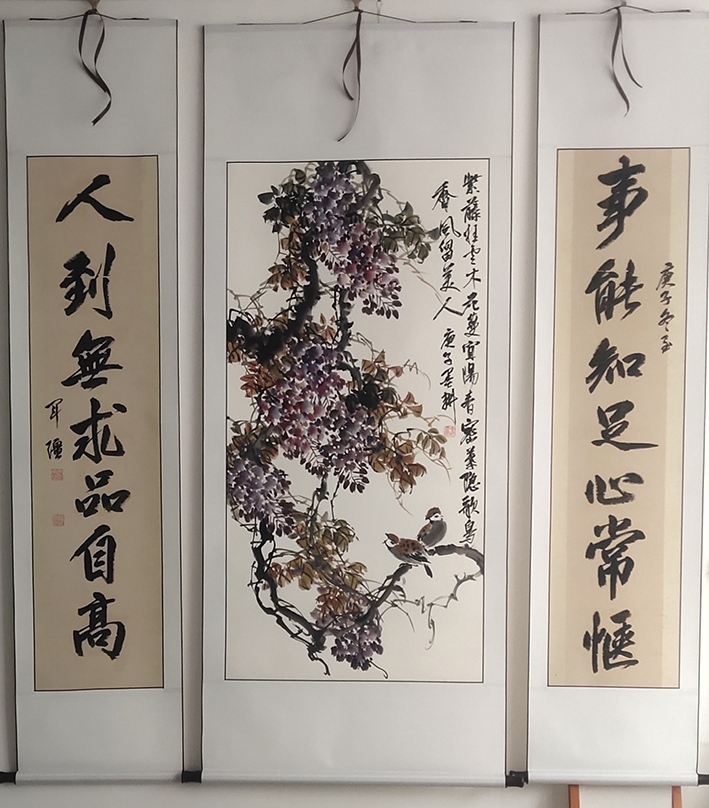 事能知足心常愜
庚子冬至
紫藤挂雲木花蔓宜陽春密葉隱歌鳥
香風留美人
庚子墨
人到無求品自高